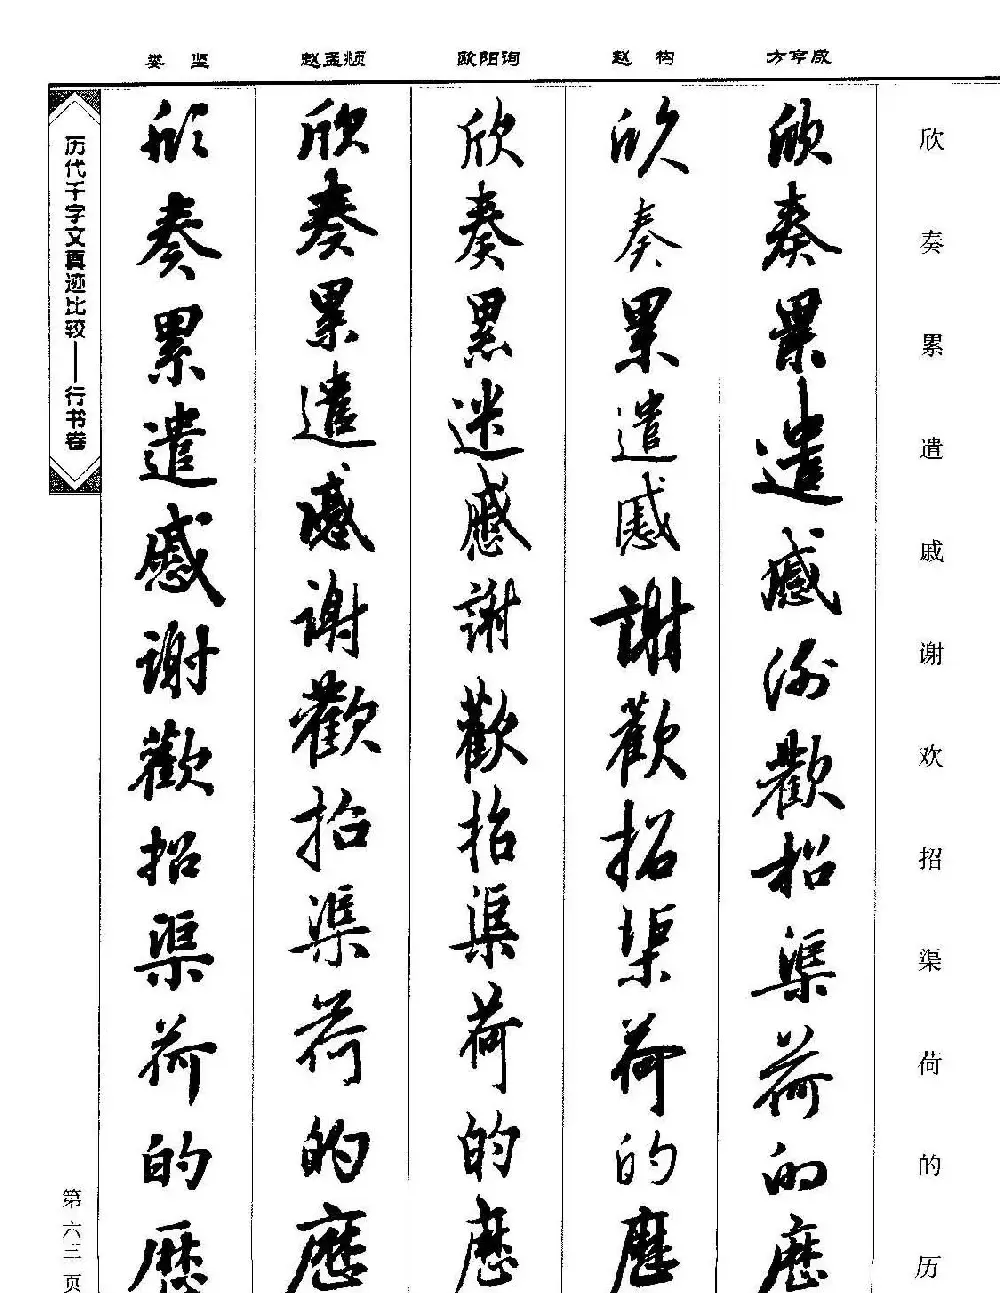 娄 坚 赵孟頫 欧阳询 赵 构 方亨咸
欣奏累遣戚谢欢招渠荷的历
欣奏累遣慼谢歡招渠荷的歷
欣奏累遣慼謝歡招渠荷的歷
欣奏累遣慼謝歡招渠荷的歷
欣奏累遣慼谢歡招渠荷的歷
欣奏累遣慼谢歡招渠荷的歷
历代千字文真迹比较——行书卷
第六三页